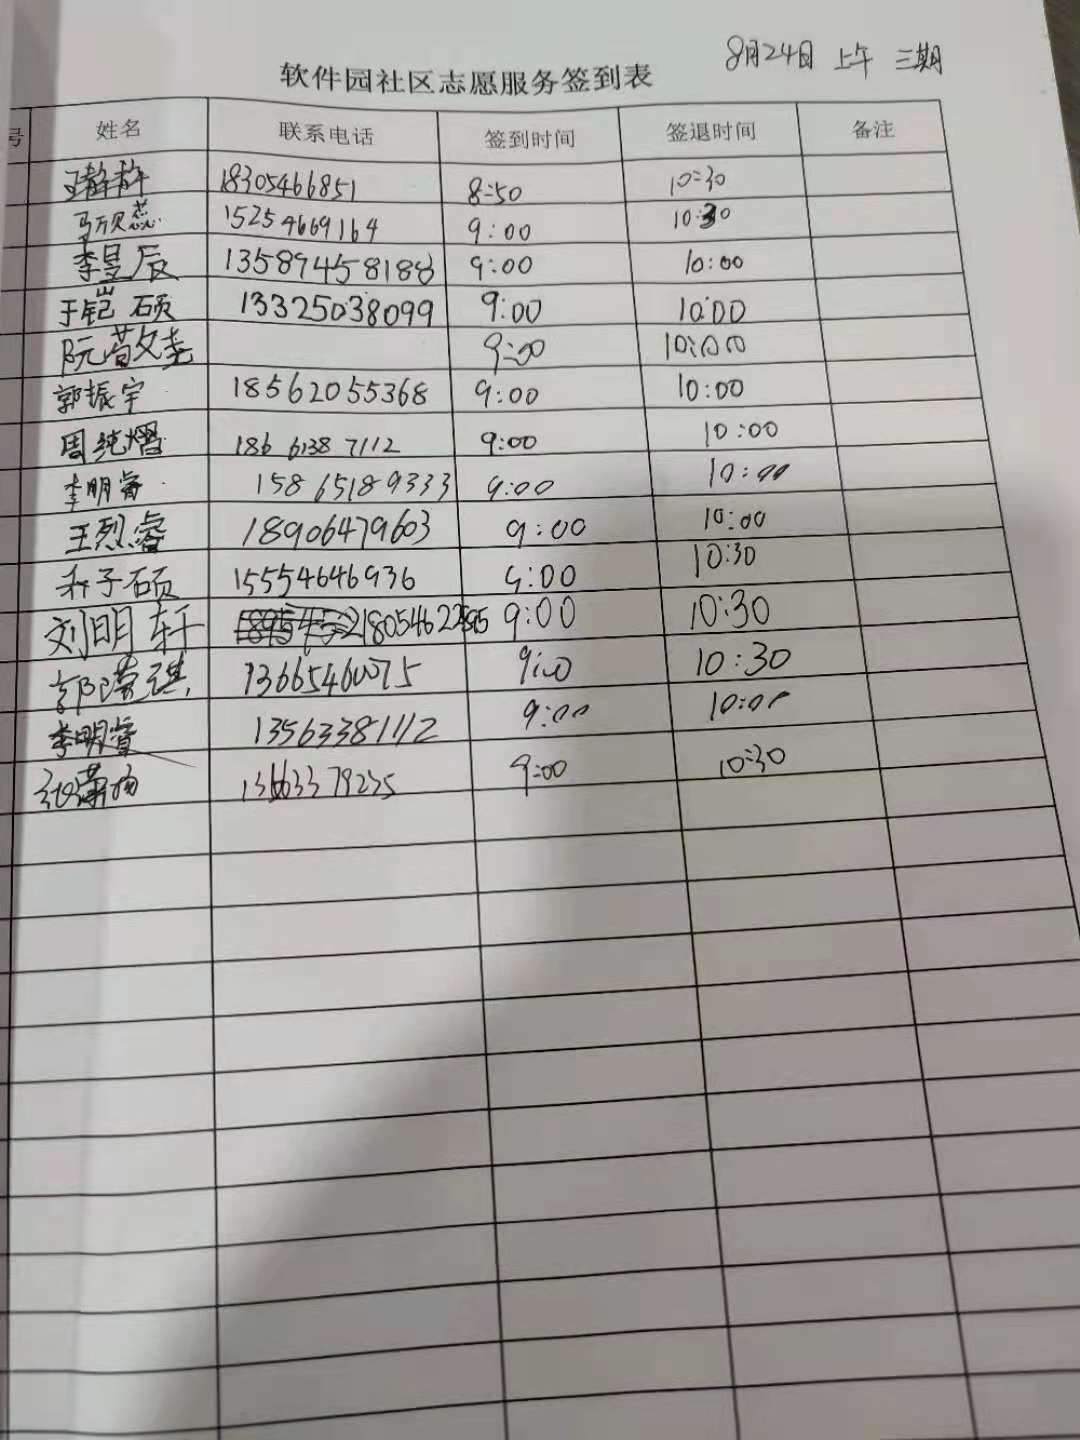 8月24日 上午 三期
软件园社区志愿服务签到表
号 姓名 联系电话 签到时间 签退时间 备注
王静静 18305466851 8:50 10:30
15254669164 9:00 10:30
李昱辰 13589458188 9:00 10:00
于铠硕 13325038099 9:00 10:00
9:00 10:00
郭振宇 18562055368 9:00 10:00
周纯熠 186 6138 7112 9:00 10:00
李明睿 15865189333 9:00 10:00
王烈睿 18906479603 9:00 10:00
子硕 15554646936 9:00 10:30
刘明轩 9:00 10:30
13665460075 9:00 10:30
李明睿 13563381112 9:00 10:00
9:00 10:30